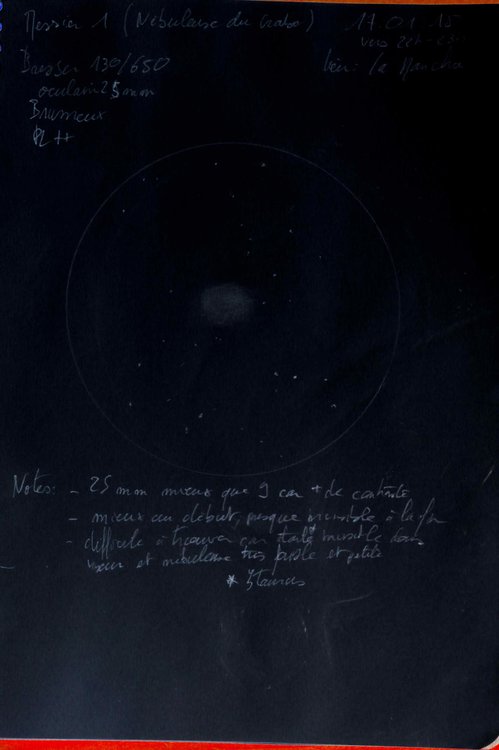 Messier 1 (Nébuleuse du Crabe)
17.01.15
vers
Bresser 130/650
Lieu: la Mancha
oculaire 25mm
Brumeux
PL ++
Notes: - 25 mm mieux que 9 car + de contraste
- mieux au début, presque invisible à la fin
- difficile à trouver car étoile invisible dans
viseur et nébuleuse très faible et petite
* ζ Taurus